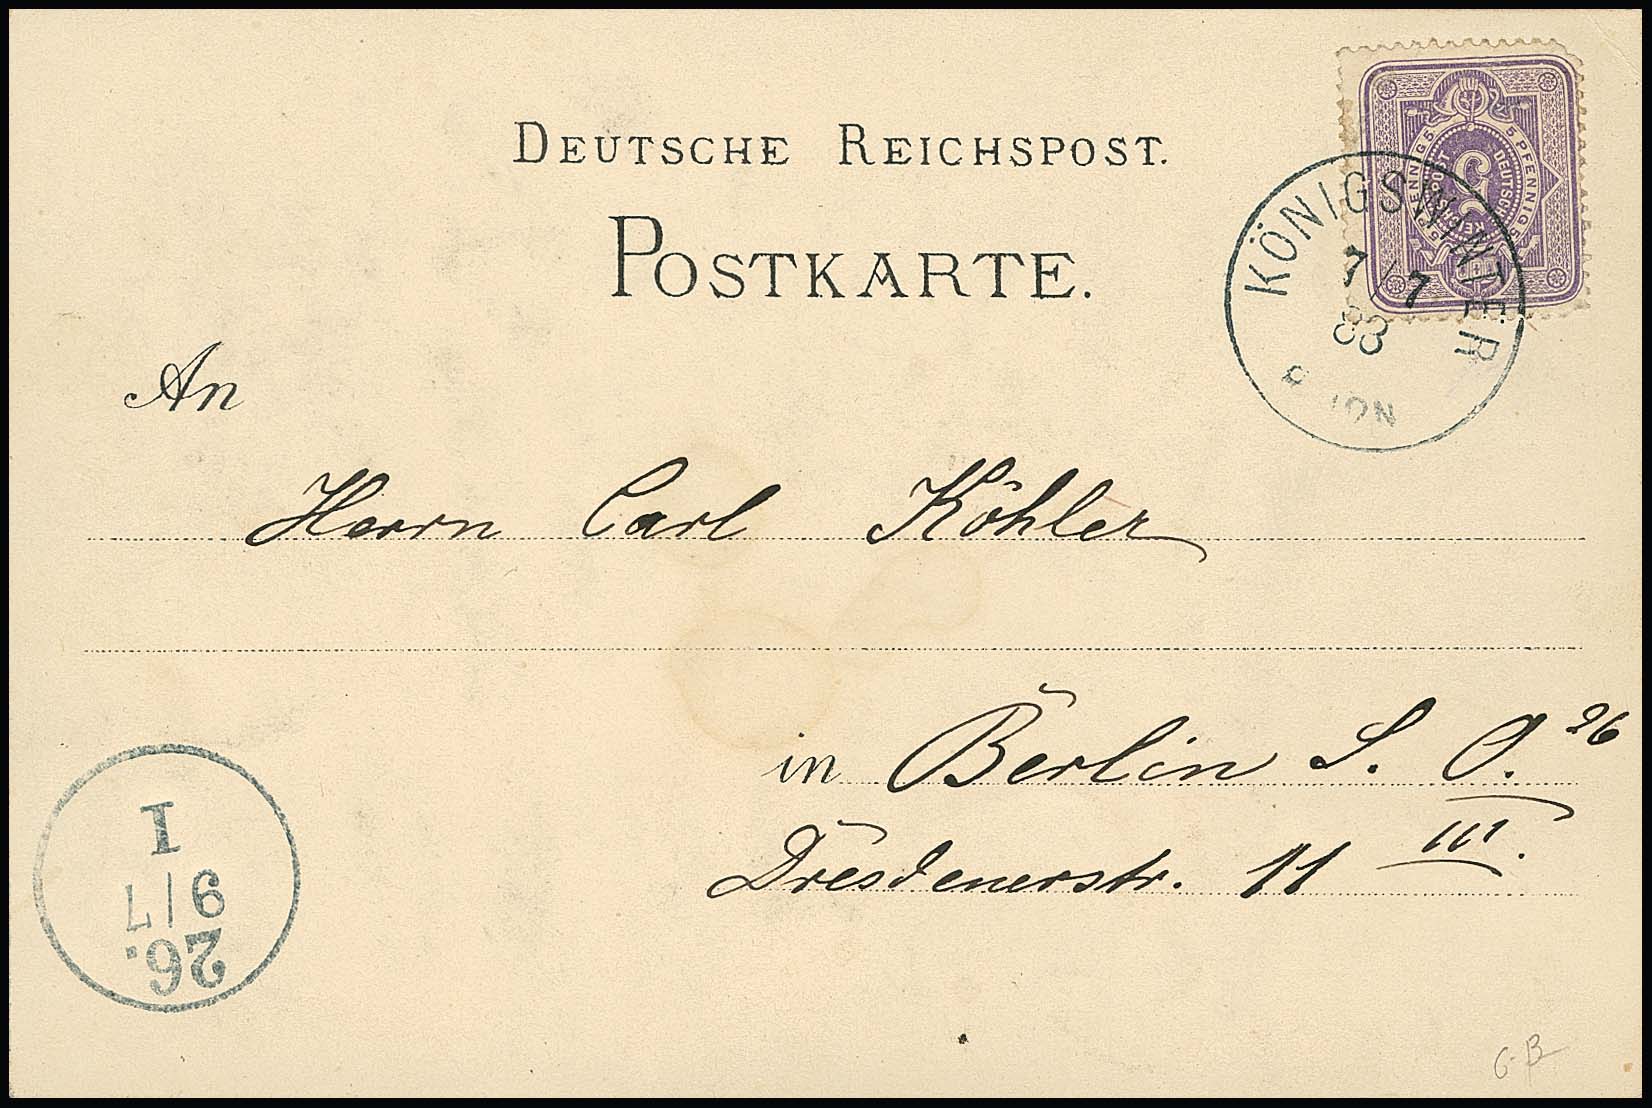 DEUTSCHE REICHSPOST.
POSTKARTE.
5 PFENNIG 5
5 PFENNIG 5
DEUTSCHE
REICHSPOST
5
KÖNIGSWINTER
7/7
83
An
Herrn Carl Köhler
in Berlin S. O. 26
Dresdenerstr. 11 III.
26.
9/7
I
G-B